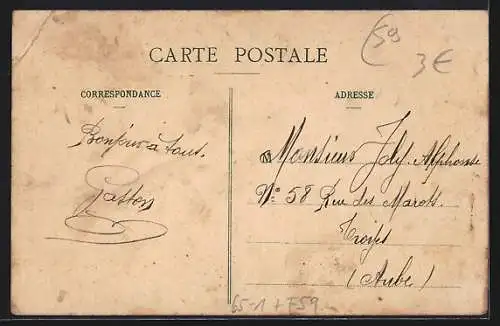 CARTE POSTALE
59
3€
CORRESPONDANCE
ADRESSE
Bonjour à tous.
Gaston
Monsieur Joly. Alphonse
N° 58 Rue des Marots.
Troyes
(Aube)
65-1 + F59